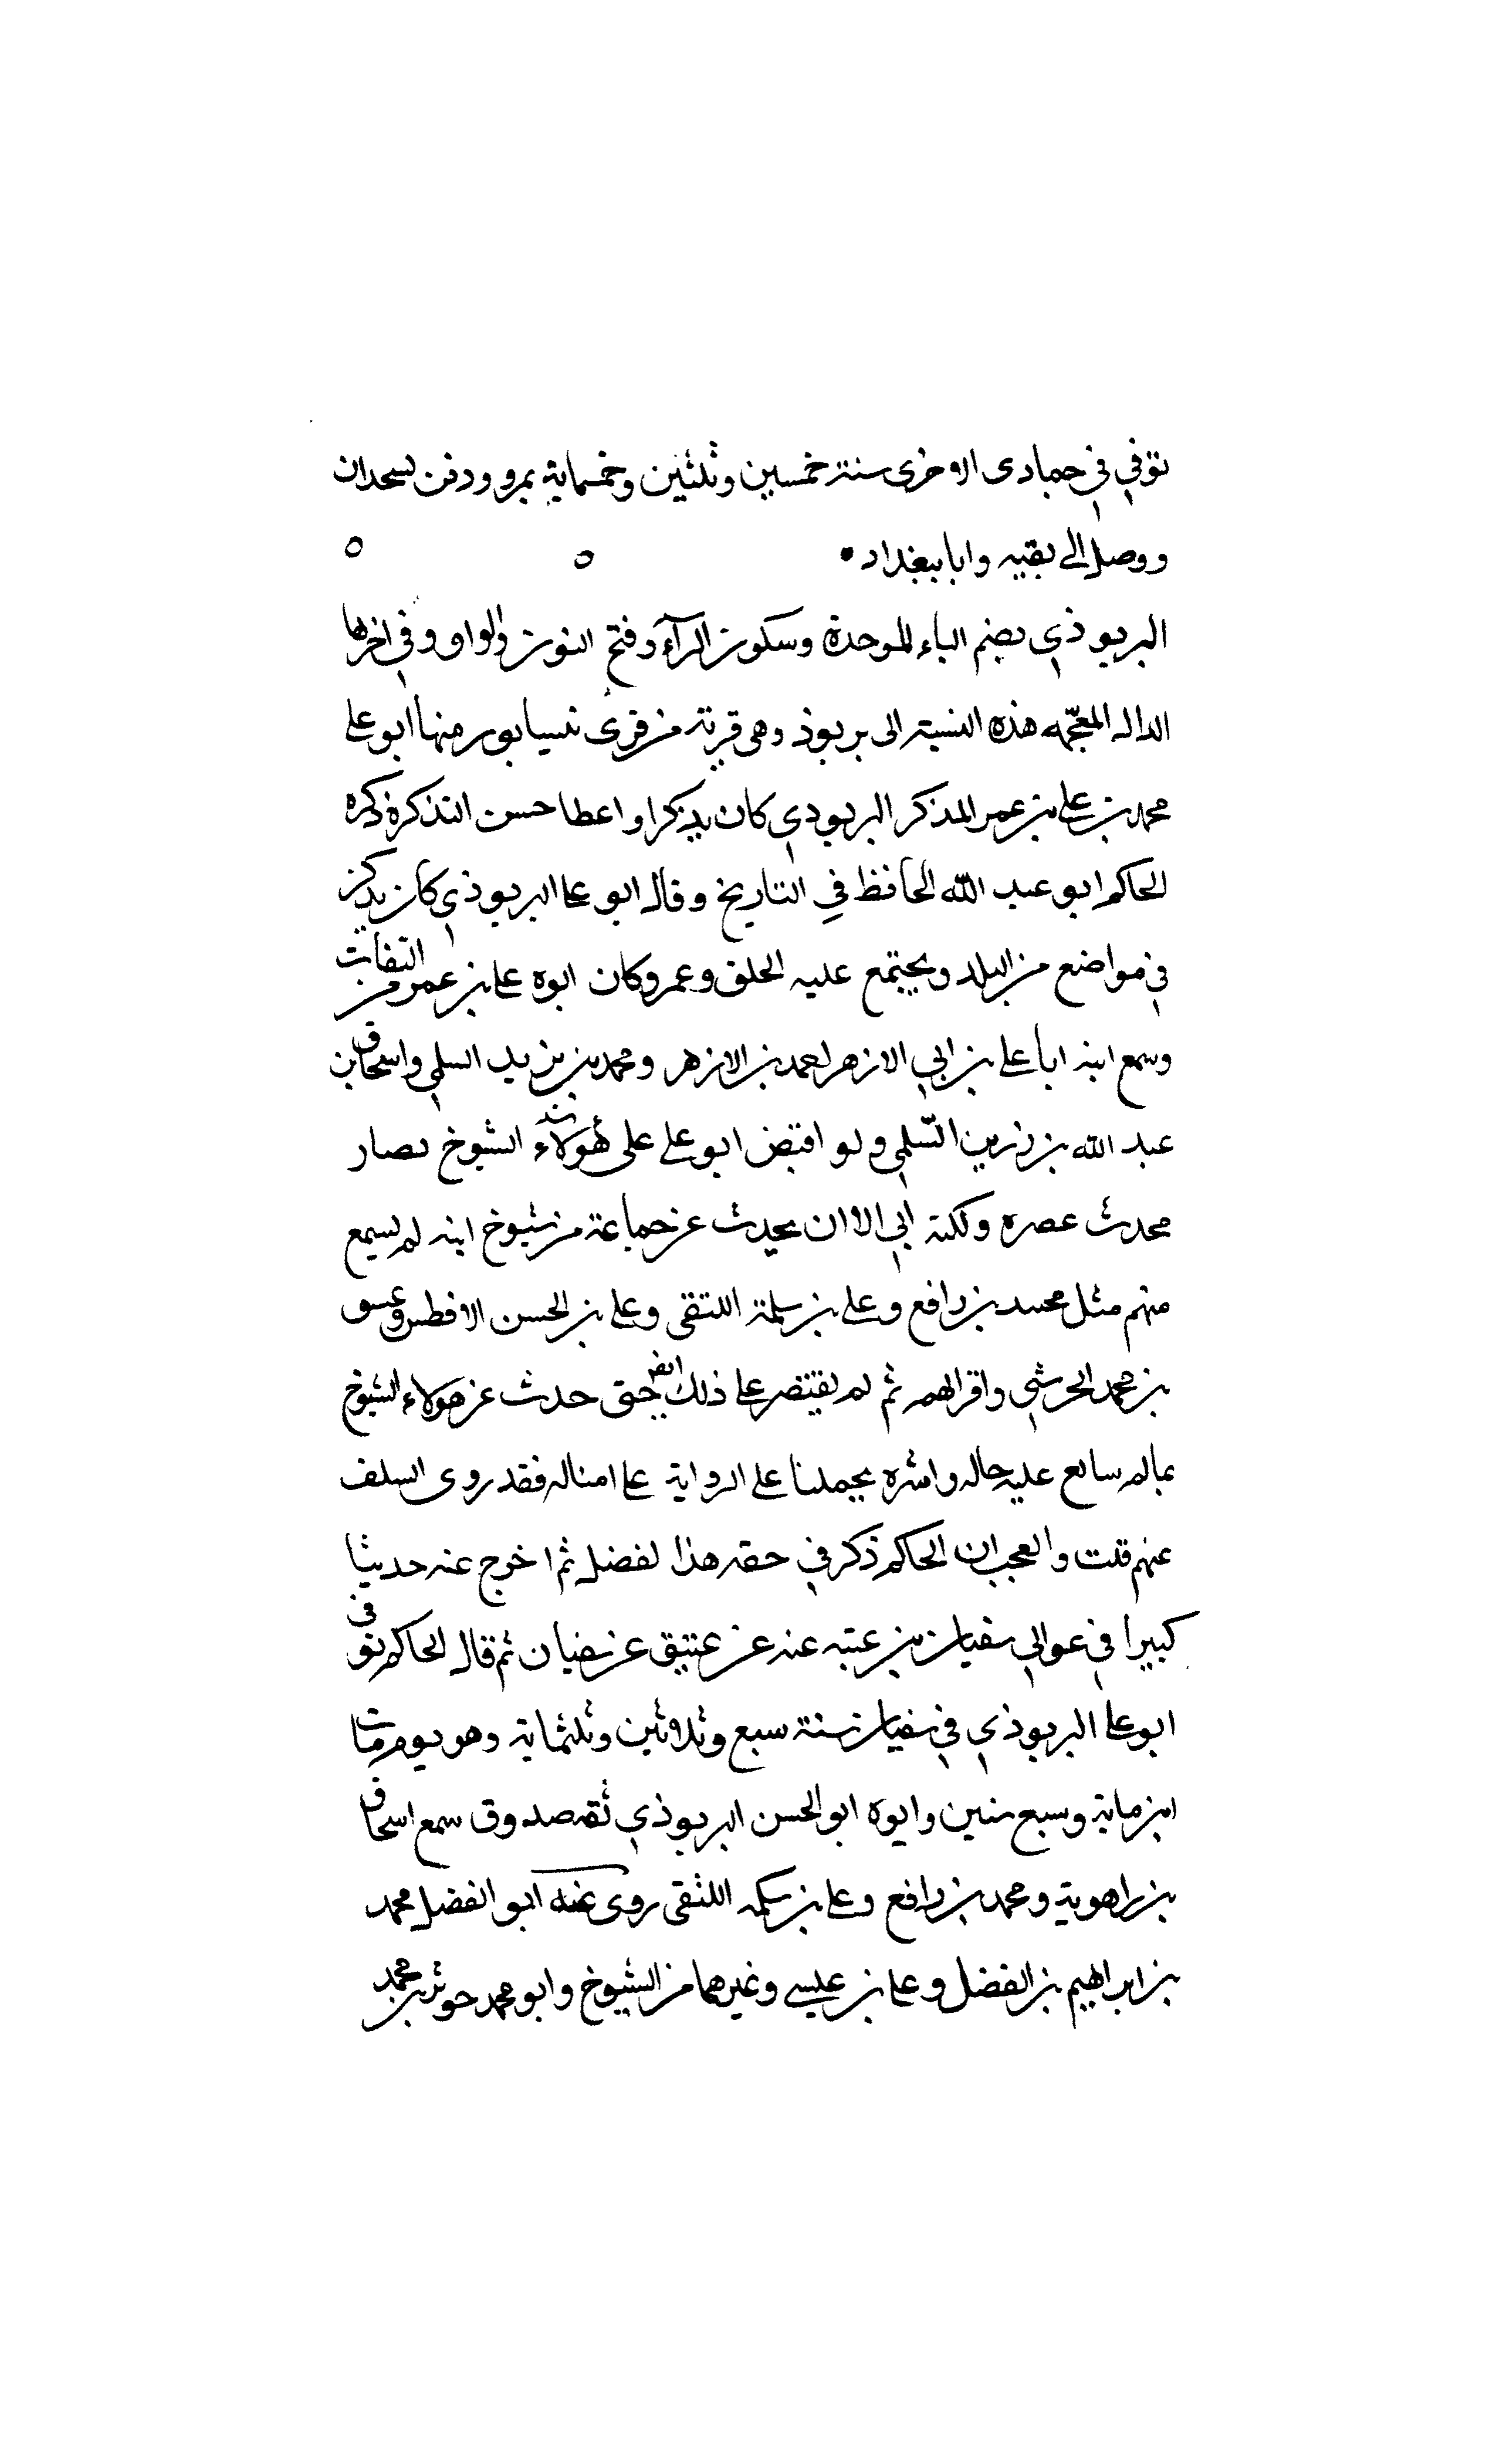 توفي في جمادى الاخرى سنة خمسين وثلثين وخمسماية بمرو ودفن بسجدان
ووصل الي بقيه وانا ببغداد
البربوذي بضم الباء الموحدة وسكون الرآء وفتح النون والواو وفي اخرها
الدال المعجمه هذه النسبة الى بربوذ وهى قرية من قرى نيسابور منها ابو على
محمد بن على بن عمر المذكر البربودي كان يذكرا واعطا حسن التذكرة ذكره
الحاكم ابو عبد الله الحافظ في التاريخ وقال ابو على البربوذي كان يذكر
في مواضع من البلد ويجتمع عليه الخلق وعمر وكان ابوه على بن عمر من الثقات
وسمع ابنه ابا على بن ابي الازهر احمد بن الازهر ومحمد بن يزيد السلمي واسحاق بن
عبد الله بن رزين السلمي ولو اقتض ابو على على هولاء الشيوخ لصار
محدث عصره ولكنه ابي الا ان يحدث عن جماعة من شيوخ ابنه لم يسمع
منهم مثل محمد بن رافع وعلى بن سلمة اللتقى وعلى بن الحسن الافطس وعتيق
بن محمد الحرشي واقرانهم ثم لم يقتصر على ذلك ايض حتى حدث عن هولاء الشيوخ
بما لم يتابع عليه حاله واشره يحملنا على الرواية على امثاله فقد روى السلف
عنهم قلت والعجب ان الحاكم ذكر في حقه هذا لفضل ثم اخرج عنه حديثا
كبيرا في عوالي سفيان بن عتبه عنه عن عتيق عن سفيان ثم قال الحاكم توفى
ابو على البربوذي في سفيان سنة سبع وثلاثين وثلثماية وهو يوم مات
ابن ماية وسبع سنين وابوه ابو الحسن البربوذي ثقه صدوق سمع اسحاق
بن راهوية ومحمد بن رافع وعلى بن سلمه اللتقى روى عنه ابو الفضل محمد
بن ابراهيم بن الفضل وعلى بن عيسى وغيرهما من الشيوخ وابو محمد حوثر بن محمد